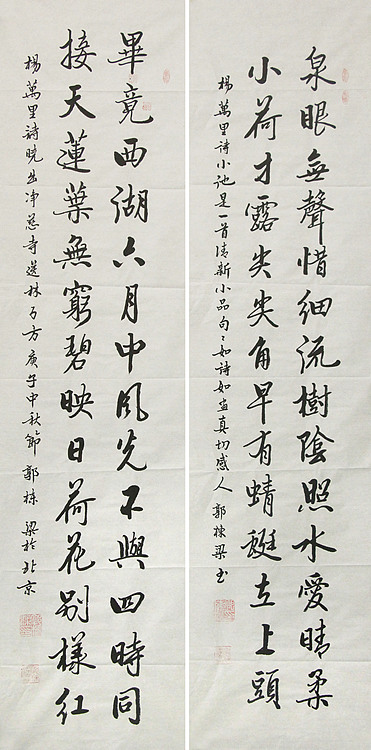 泉眼無聲惜細流樹陰照水愛晴柔
小荷才露尖尖角早有蜻蜓立上頭
楊萬里詩小池是一首清新小品句々如詩如畫真切感人 郭棟梁書
畢竟西湖六月中風光不與四時同
接天蓮葉無窮碧映日荷花別樣紅
楊萬里詩曉出净慈寺送林子方庚子中秋節 郭棟梁於北京